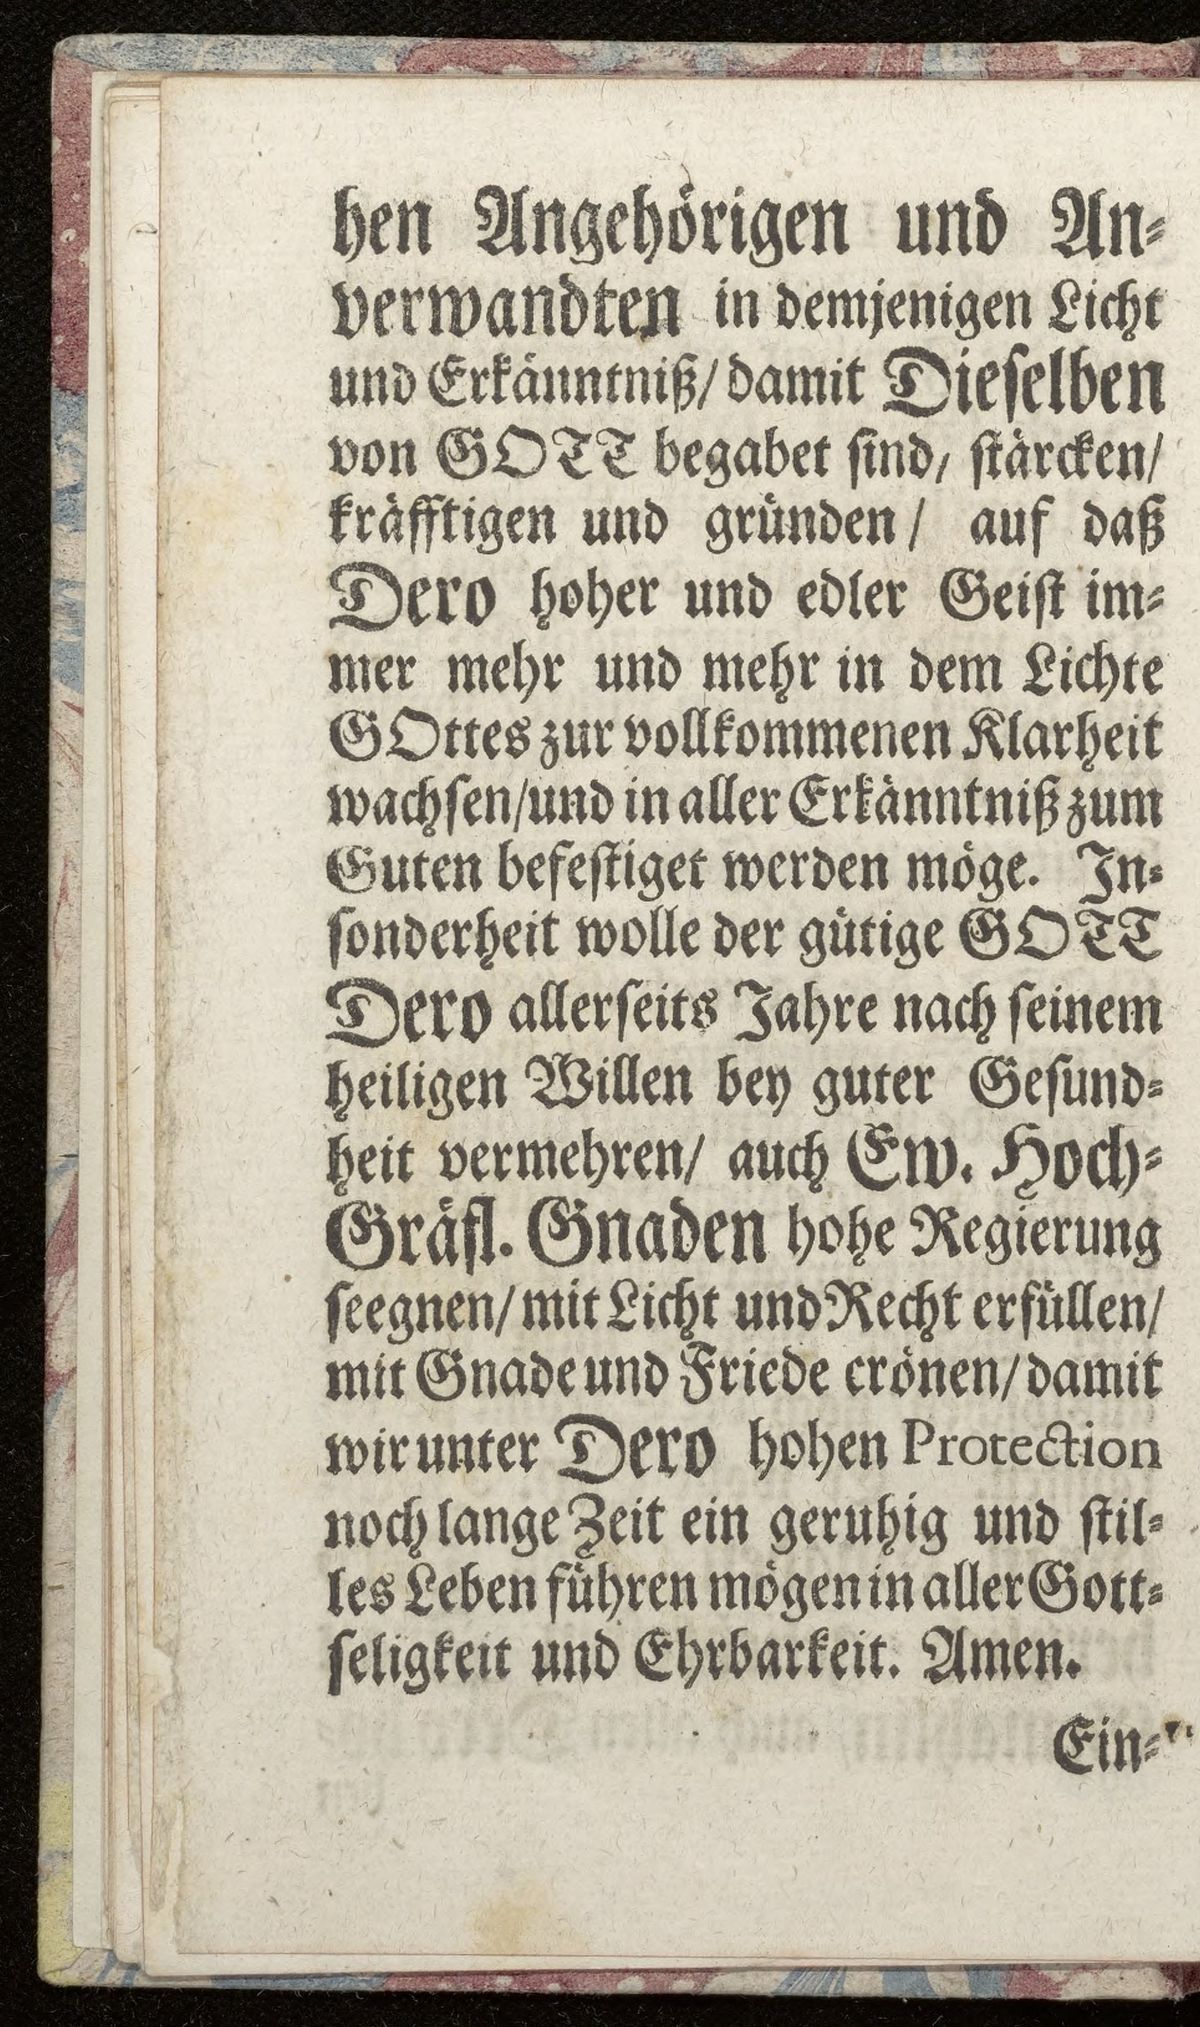 hen Angehörigen und An-
verwandten in demjenigen Licht
und Erkänntniß/ damit Dieselben
von GOTT begabet sind, stärcken/
kräfftigen und gründen/ auf daß
Dero hoher und edler Geist im-
mer mehr und mehr in dem Lichte
GOttes zur vollkommenen Klarheit
wachsen/und in aller Erkänntniß zum
Guten befestiget werden möge. In-
sonderheit wolle der gütige GOTT
Dero allerseits Jahre nach seinem
heiligen Willen bey guter Gesund-
heit vermehren/ auch Ew. Hoch-
Gräfl. Gnaden hohe Regierung
seegnen/ mit Licht und Recht erfüllen/
mit Gnade und Friede crönen/ damit
wir unter Dero hohen Protection
noch lange Zeit ein geruhig und stil-
les Leben führen mögen in aller Gott-
seligkeit und Ehrbarkeit. Amen.
Ein-